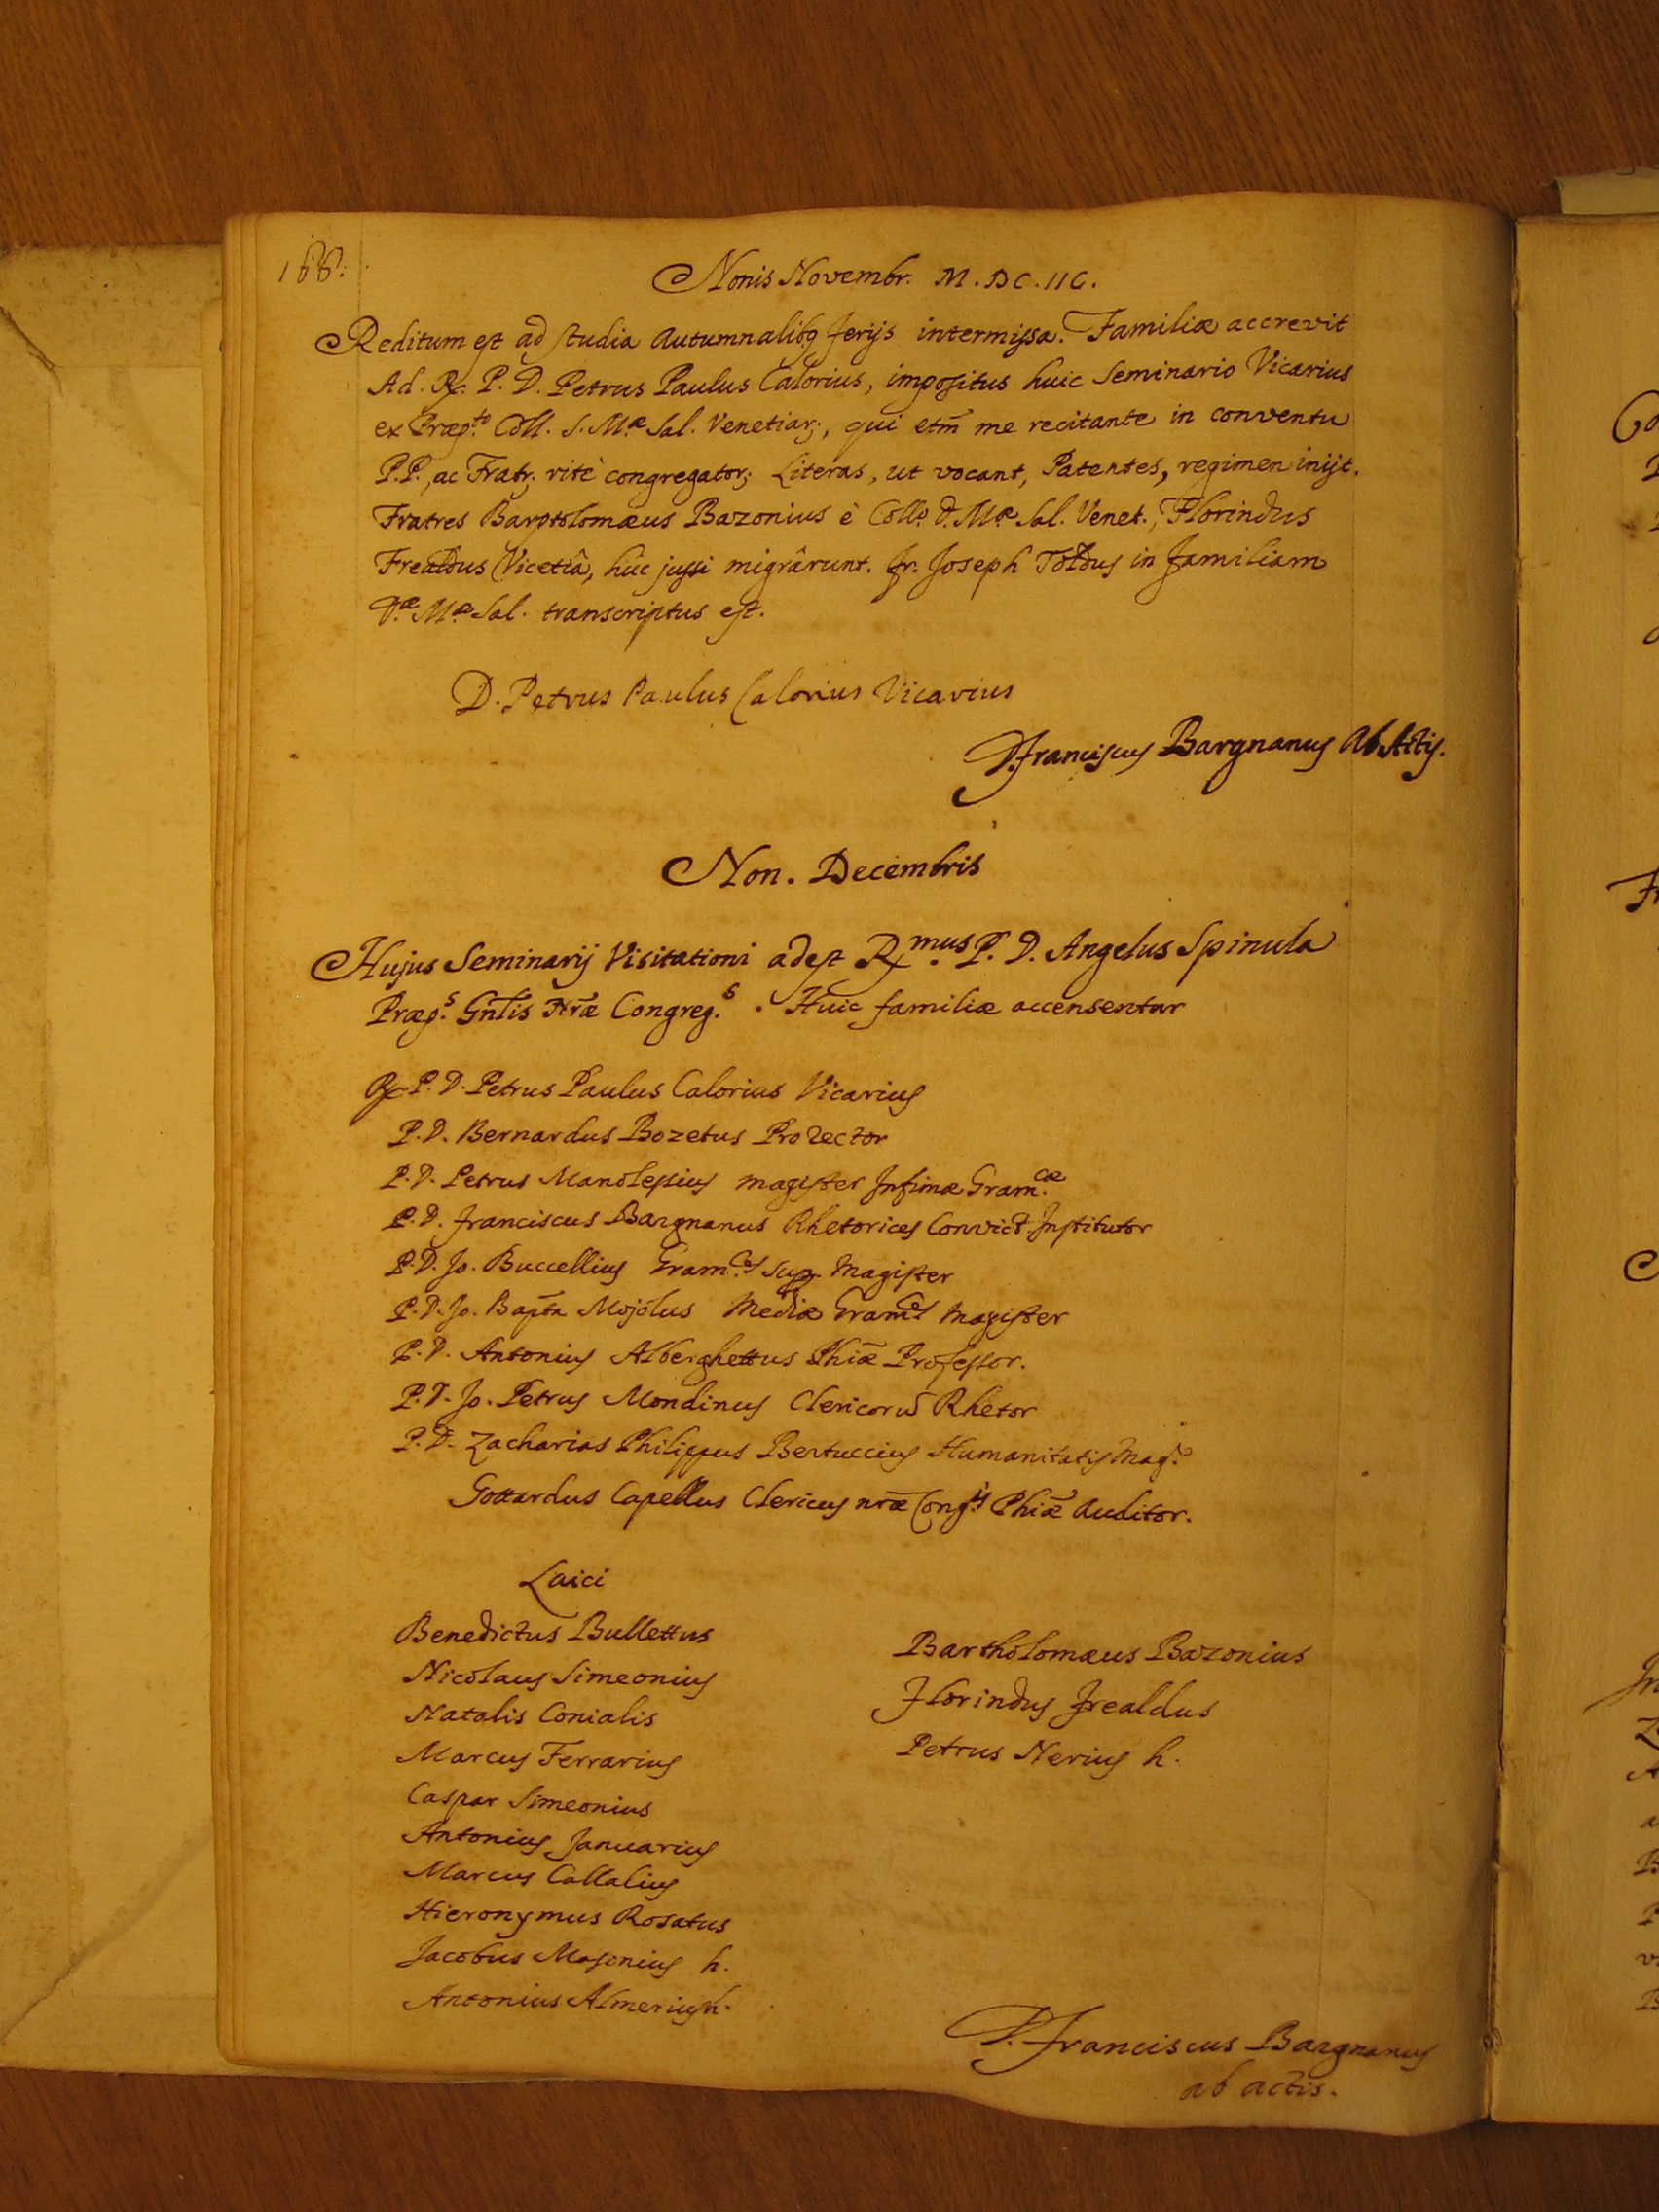 166.
Nonis Novembr. M.DC.IIC.
Reditum est ad studia autumnalibq ferijs intermissa. Familiæ accrevit
Ad. R. P. D. Petrus Paulus Calorius, impositus huic Seminario Vicarius
ex Præp.to Coll. S. M.æ Sal. Venetiar;, qui etm̃ me recitante in conventu
P.P., ac Fratr; ritè congregator; Literas, ut vocant, Patentes, regimen inijt.
Fratres Barptolomæus Bazonius è Coll.o d. M.æ Sal. Venet., Florindus
Frealdus Vicetiâ, hûc jussi migrârunt. Fr. Joseph Toldus in familiam
d.æ M.æ Sal. transcriptus est.
D. Petrus Paulus Calorius Vicarius
D. Franciscus Bargnanus Ab Actis.
Non. Decembris
Hujus Seminarij Visitationi adest R.mus P. D. Angelus Spinula
Præp.s Gñlis Nr̃æ Congreg.s. Huic familiæ accensentur
R. P. D. Petrus Paulus Calorius Vicarius
P. D. Bernardus Bozetus Prorector
P. D. Petrus Manolessius magister Infimæ Gram.cæ
P. D. Franciscus Bargnanus Rhetorices Convict. Institutor
P. D. Jo. Buccellius Gram.es Sup. Magister
P. D. Jo. Bapt̃a Mojolus Mediæ Gram.es Magister
P. D. Antonius Alberghettus Phiæ̃ Professor.
P. D. Jo. Petrus Mondinus Clericorũ Rhetor
P. D. Zacharias Philippus Bertuccius Humanitatis Mag.r
Gottardus Capellus Clericus nr̃æ Cong.is Phiæ̃ Auditor.
Laici
Benedictus Bullettus
Nicolaus Simeonius
Natalis Conialis
Marcus Ferrarius
Caspar Simeonius
Antonius Januarius
Marcus Callalius
Hieronymus Rosatus
Jacobus Masonius h.
Antonius Almerius h.
Bartholomæus Bazonius
Florindus Frealdus
Petrus Nerius h.
D. Franciscus Bargnanus
ab actis.